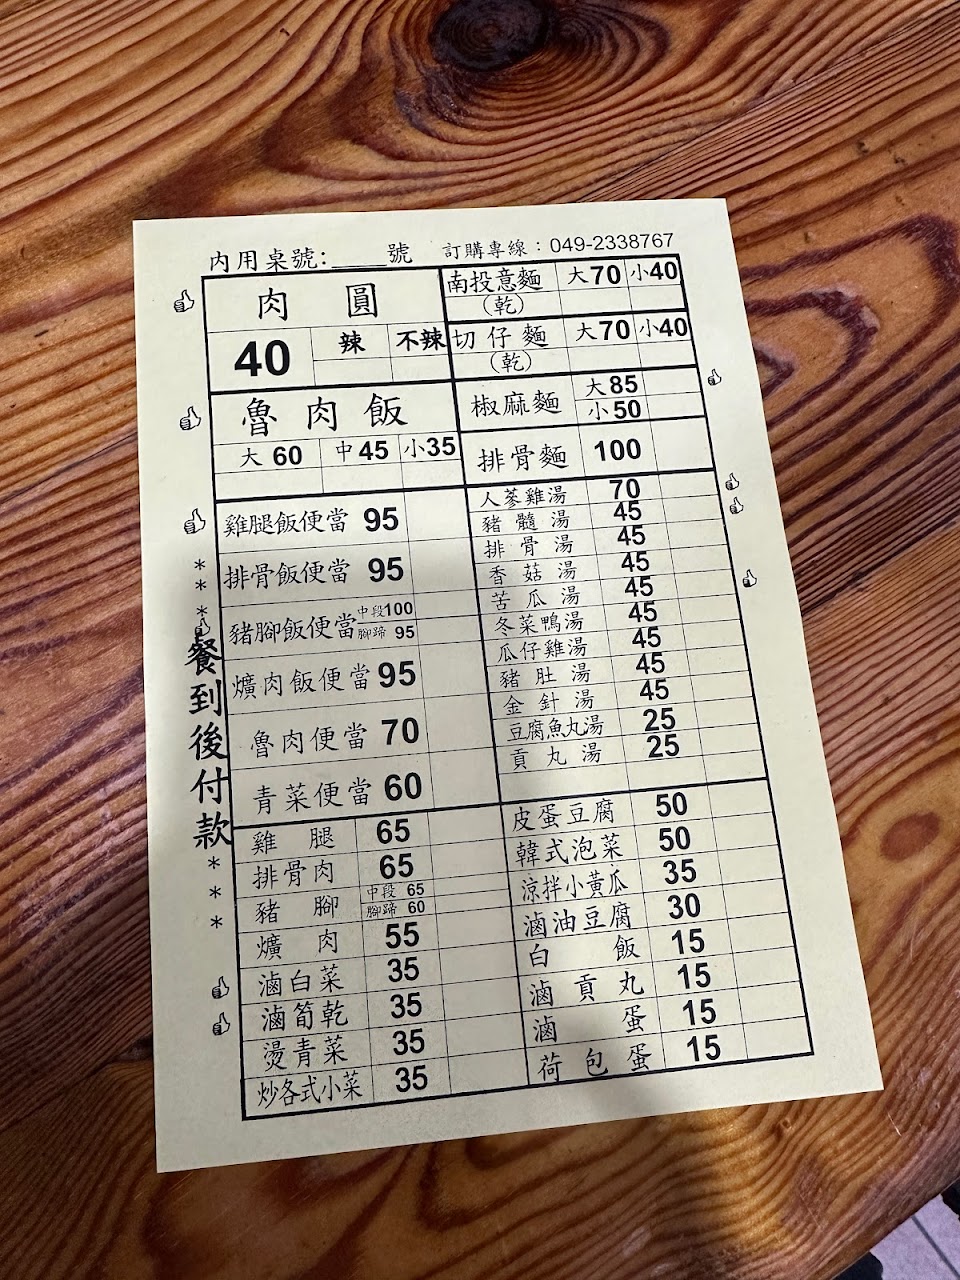 內用桌號:____號 訂購專線：049-2338767
肉圓
40 辣 不辣
魯肉飯
大60 中45 小35
雞腿飯便當 95
排骨飯便當 95
豬腳飯便當 中段100 腳蹄 95
爌肉飯便當 95
魯肉便當 70
青菜便當 60
雞腿 65
排骨肉 65
豬腳 中段 65 腳蹄 60
爌肉 55
滷白菜 35
滷筍乾 35
燙青菜 35
炒各式小菜 35
南投意麵(乾) 大70 小40
切仔麵(乾) 大70 小40
椒麻麵 大85 小50
排骨麵 100
人蔘雞湯 70
豬髓湯 45
排骨湯 45
香菇湯 45
苦瓜湯 45
冬菜鴨湯 45
瓜仔雞湯 45
豬肚湯 45
金針湯 45
豆腐魚丸湯 25
貢丸湯 25
皮蛋豆腐 50
韓式泡菜 50
涼拌小黃瓜 35
滷油豆腐 30
白飯 15
滷貢丸 15
滷蛋 15
荷包蛋 15
***餐到後付款***